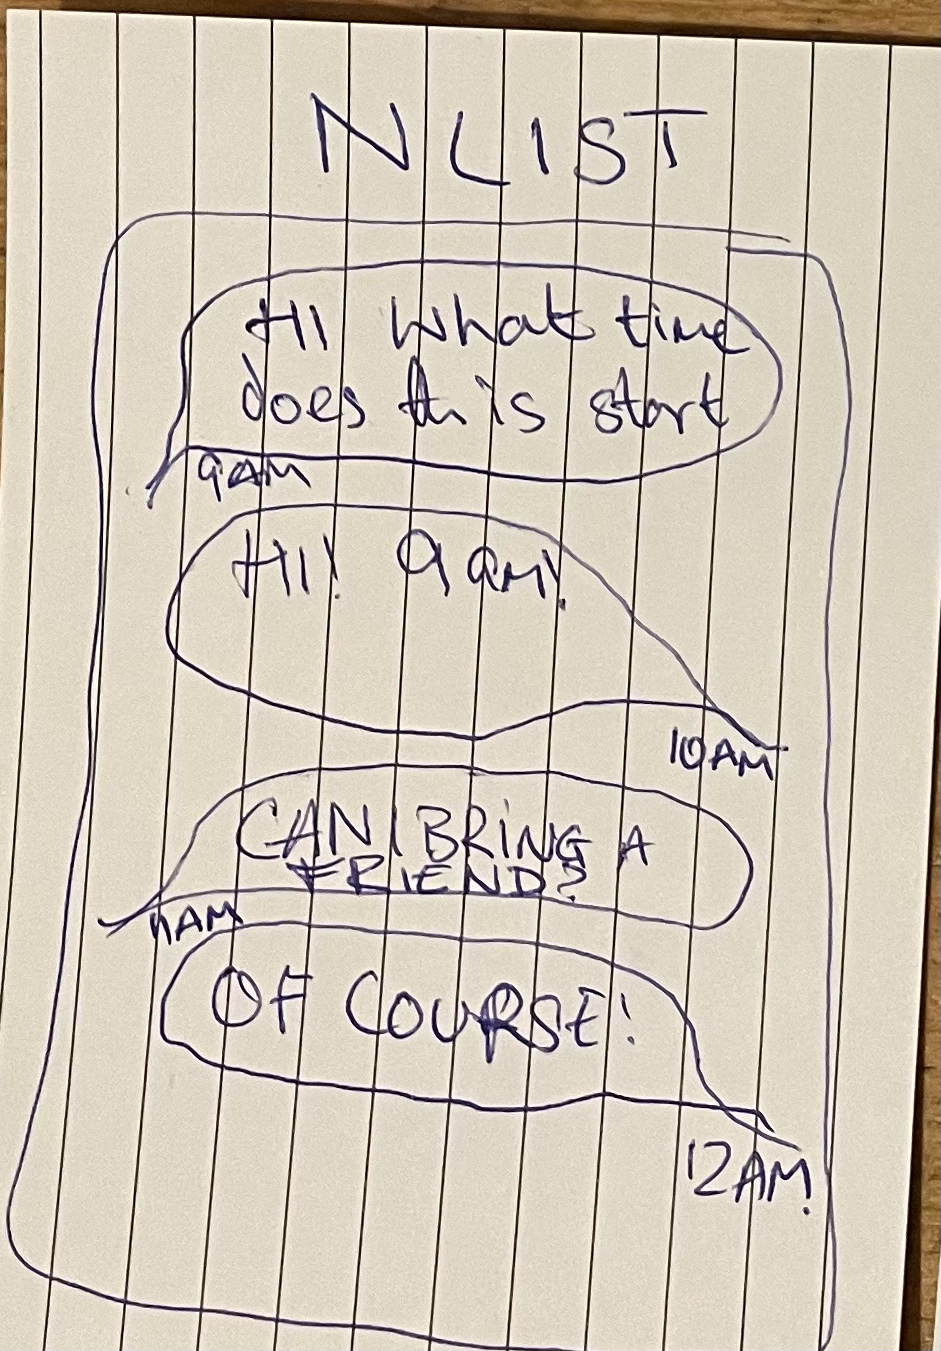 NLIST
HI What time
does this start
9AM
HI! 9 am!
10AM
CAN I BRING A
FRIEND?
11AM
OF COURSE!
12AM